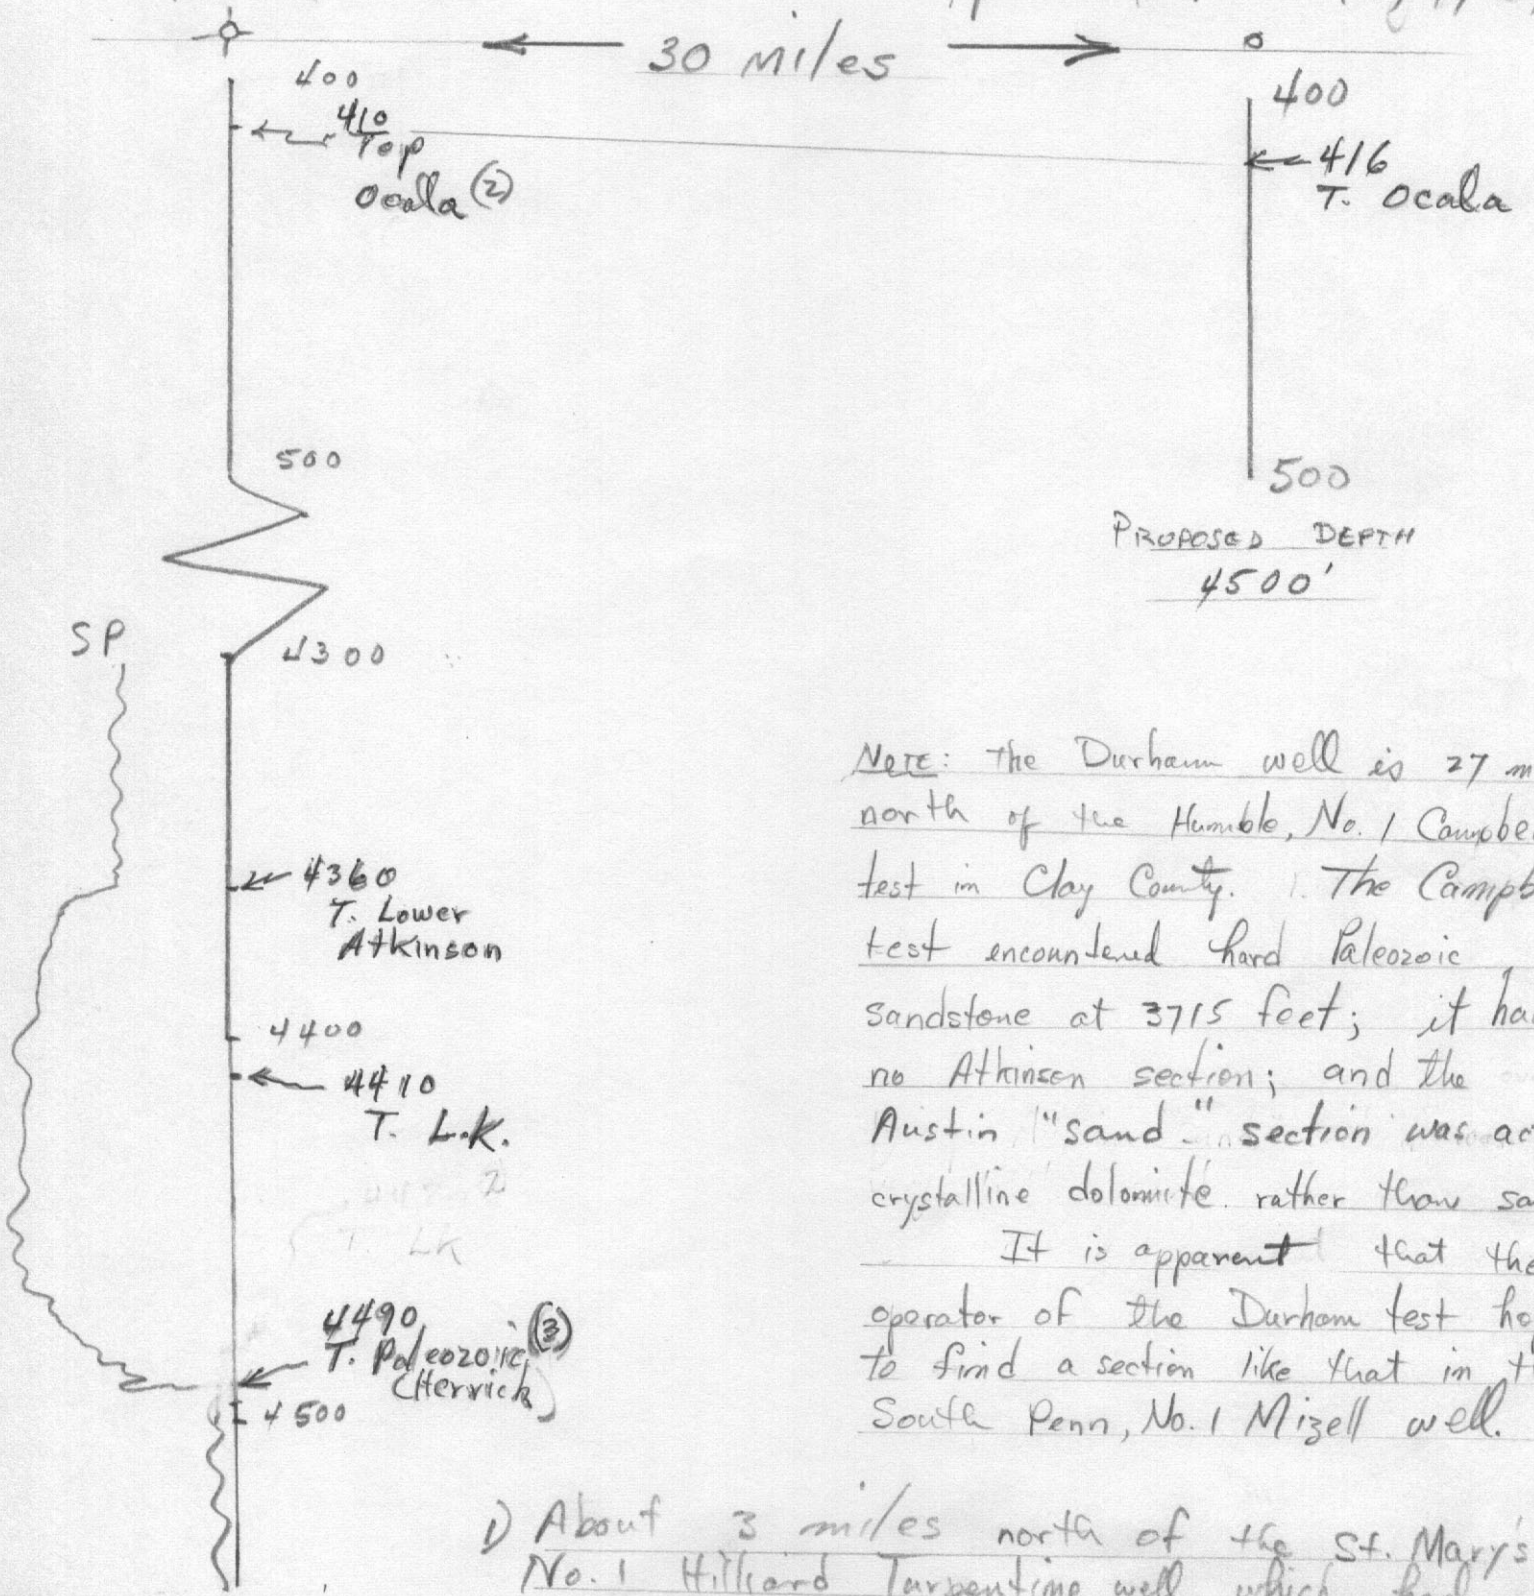 30 miles
400
410
Top
Ocala (2)
400
416
T. Ocala
500
500
PROPOSED DEPTH
4500'
SP
4300
4360
T. Lower
Atkinson
4400
4410
T. L.K.
2
T. LK
4490
T. Paleozoic (3)
(Herrick)
4500
NOTE: The Durham well is 27 m
north of the Humble, No. 1 Campbe
test in Clay County. The Campb
test encountered hard Paleozoic
sandstone at 3715 feet; it ha
no Atkinson section; and the
Austin "sand" section was ac
crystalline dolomite rather than sa
It is apparent that the
operator of the Durham test ho
to find a section like that in t
South Penn, No. 1 Mizell well.
1) About 3 miles north of the St. Mary's
No. 1 Hilliard Turpentine well which